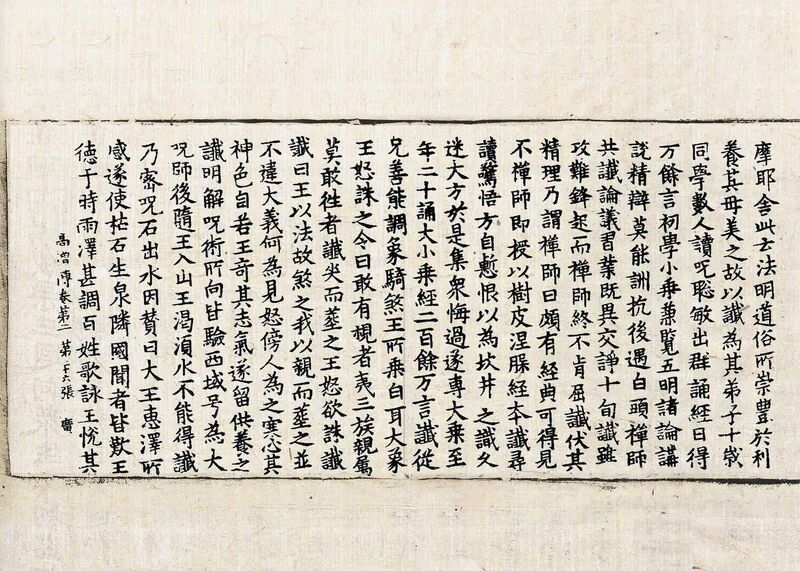 摩耶舍此云法明道俗所崇豊於利
養其毋美之故以讖為其弟子十歲
同學數人讀呪聦敏出群誦經日得
万餘言初學小乘蒹覧五明諸論講
說精辯莫能詶抗後遇白頭禪師
共讖論議習業既異交諍十旬讖雖
攻難鋒起而禪師終不肯屈讖伏其
精理乃謂禪師曰頗有經典可得見
不禪師即授以樹皮涅槃經夲讖尋
讀驚悟方自慙恨以為坎井之識久
迷大方於是集衆悔過遂専大乘至
年二十誦大小乘經二百餘万言讖從
兄善能調象騎煞王所乘白耳大象
王怒誅之令曰敢有視者夷三族親屬
莫敢徃者讖哭而塟之王怒欲誅讖
讖曰王以法故煞之我以親而塟之並
不違大義何為見怒傍人為之寒心其
神色自若王竒其志氣遂留供養之
讖明解呪術所向皆驗西域号為大
呪師後隨王入山王渴湏水不能得讖
乃宻呪石出水因賛曰大王惠澤所
感遂使枯石生泉隣國聞者皆歎王
徳于時雨澤甚調百姓歌詠王悅其
高僧傳卷第二 第十六張 賷